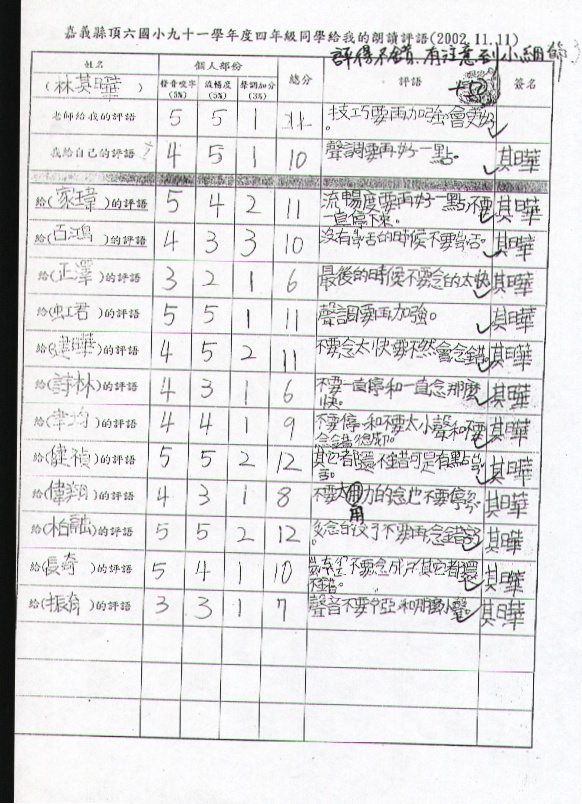 嘉義縣頂六國小九十一學年度四年級同學給我的朗讀評語(2002.11.11)
評得不錯,有注意到小細節
姓名 個人部份 總分 評語 簽名
(林其曄) 聲音咬字(5%) 流暢度(5%) 聲調加分(3%)
老師給我的評語 5 5 1 技巧要再加強會更好。
我給自己的評語 4 5 1 10 聲調要再好一點。 其曄
給(家瑋)的評語 5 4 2 11 流暢度要再好一點不要一直停下來。 其曄
給(百鴻)的評語 4 3 3 10 沒有 的時候不要 。 其曄
給(正澤)的評語 3 2 1 6 最後的時候不要念的太快 其曄
給(虹君)的評語 5 5 1 11 聲調要再加強。 其曄
給(建曄)的評語 4 5 2 11 不要念太快要不然會念錯。 其曄
給(詩林)的評語 4 3 1 6 不要一直停和一直念那麼快。 其曄
給(韋均)的評語 4 4 1 9 不要停和不要太小聲和不要念錯 其曄
給(健禎)的評語 5 5 2 12 其它都還不錯可是有點 其曄
給(偉翔)的評語 4 3 1 8 不要太用力的念也不要停 其曄
用
給(柏 )的評語 5 5 2 12 念的文字不要再念錯 其曄
給(長奇)的評語 5 4 1 10 不要念成 其它都還不錯。 其曄
給(振育)的評語 3 3 1 7 聲音不要 和那麼小聲。 其曄